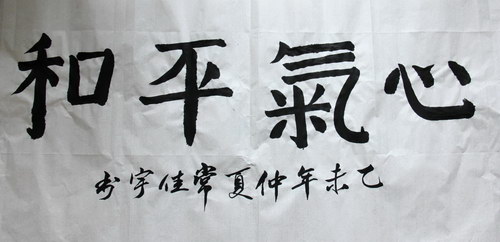 心氣平和
乙未年仲夏常佳宇书